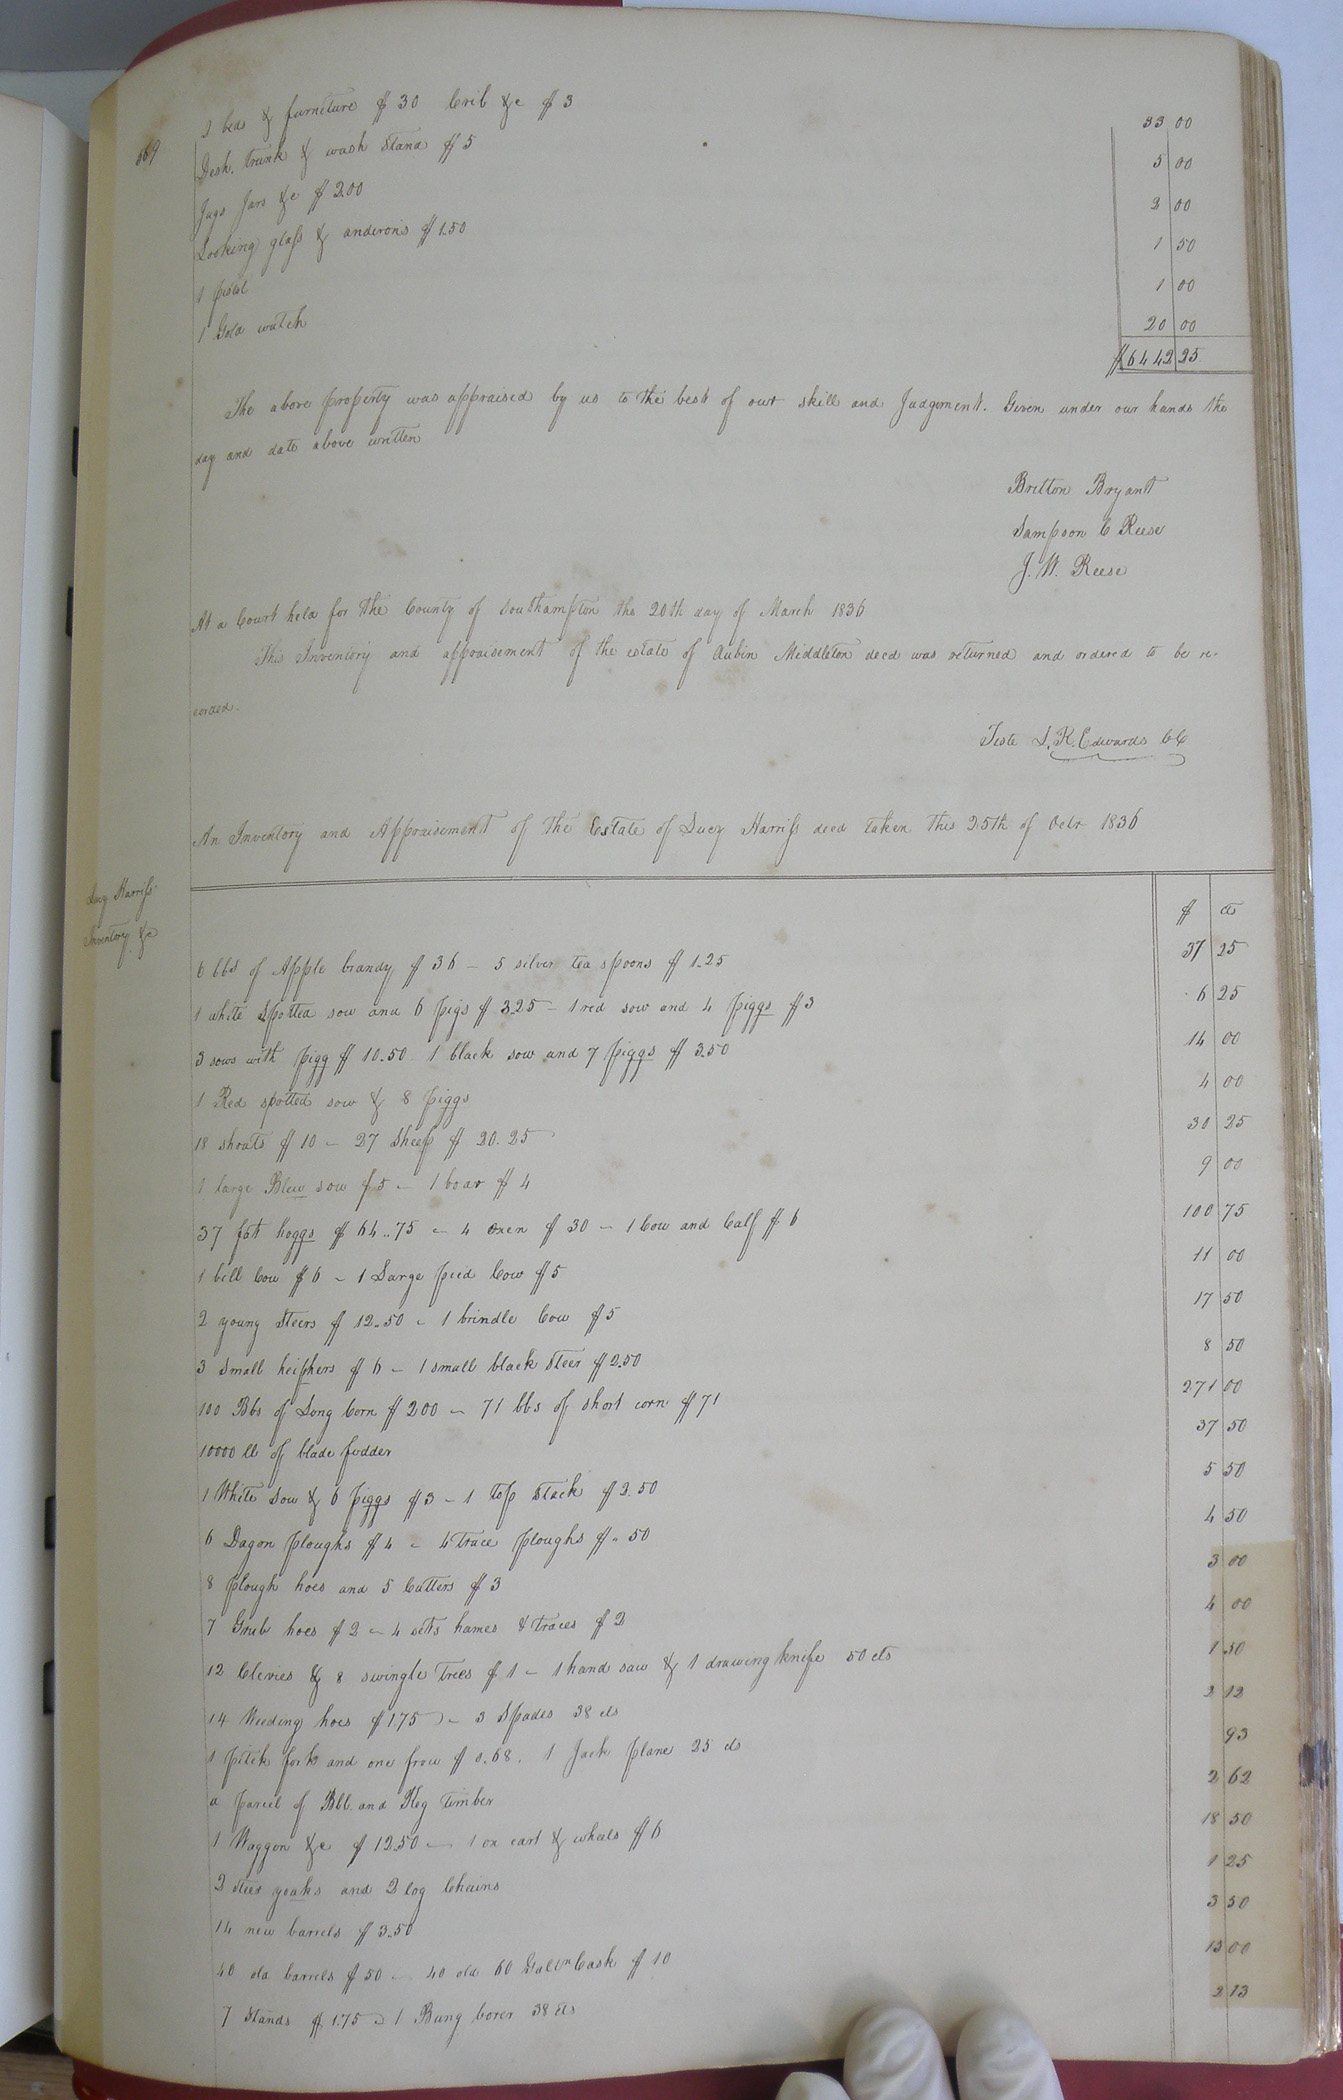 569
1 bed & furniture $30 Crib &c $3 33 00
Desk, trunk & wash stand $5 5 00
Jugs Jars &c $2.00 2 00
Looking glass & andirons $1.50 1 50
1 pistol 1 00
1 Gold watch 20 00
$6442 25
The above property was appraised by us to the best of our skill and Judgement. Given under our hands the
day and date above written
Britton Bryant
Sampson C Reese
J. W. Reese
At a Court held for the County of Southampton the 20th day of March 1836
This Inventory and appraisement of the estate of Aubin Middleton decd was returned and ordered to be re-
corded.
Teste L. R. Edwards CC
An Inventory and Appraisement of the Estate of Lucy Harriss decd taken this 25th of Octr 1836
Lucy Harriss
Inventory &c
$ cts
6 bbs of Apple brandy $36 - 5 silver tea spoons $1.25 37 25
1 white Spotted sow and 6 pigs $3.25 - 1 red sow and 4 piggs $3 6 25
3 sows with pigg $10.50 1 black sow and 7 piggs $3.50 14 00
1 Red spotted sow & 8 piggs 4 00
18 shoats $10 - 27 Sheep $20.25 30 25
1 large Blew sow $5 - 1 boar $4 9 00
37 fat hoggs $64..75 - 4 oxen $30 - 1 Cow and Calf $6 100 75
1 bell Cow $6 - 1 Large pied Cow $5 11 00
2 young Steers $12.50 - 1 brindle Cow $5 17 50
3 Small heiphers $6 - 1 small black Steer $2.50 8 50
100 Bbs of Long Corn $200 - 71 bbs of short corn $71 271 00
10000 lb of blade fodder 37 50
1 White Sow & 6 piggs $3 - 1 top Stack $2.50 5 50
6 Dagon ploughs $4 - 4 trace ploughs $.50 4 50
8 plough hoes and 5 Cutters $3 3 00
7 Grub hoes $2 - 4 sets hames & traces $2 4 00
12 Clevies & 8 swingle trees $1 - 1 hand saw & 1 drawing knife 50 cts 1 50
14 Weeding hoes $1.75 - 3 Spades 38 cts 2 12
1 pitch fork and one frow $0.68. 1 Jack plane 25 cts 93
a parcel of Bbl. and Keg timber 2 62
1 Waggon &c $12.50 - 1 ox cart & wheels $6 18 50
2 steer yoaks and 2 log Chains 1 25
14 new barrels $3.50 3 50
40 old barrels $50 - 40 old 60 Galln Cask $10 13 00
7 Stands $1.75 - 1 Bung borer 38 cts 2 13